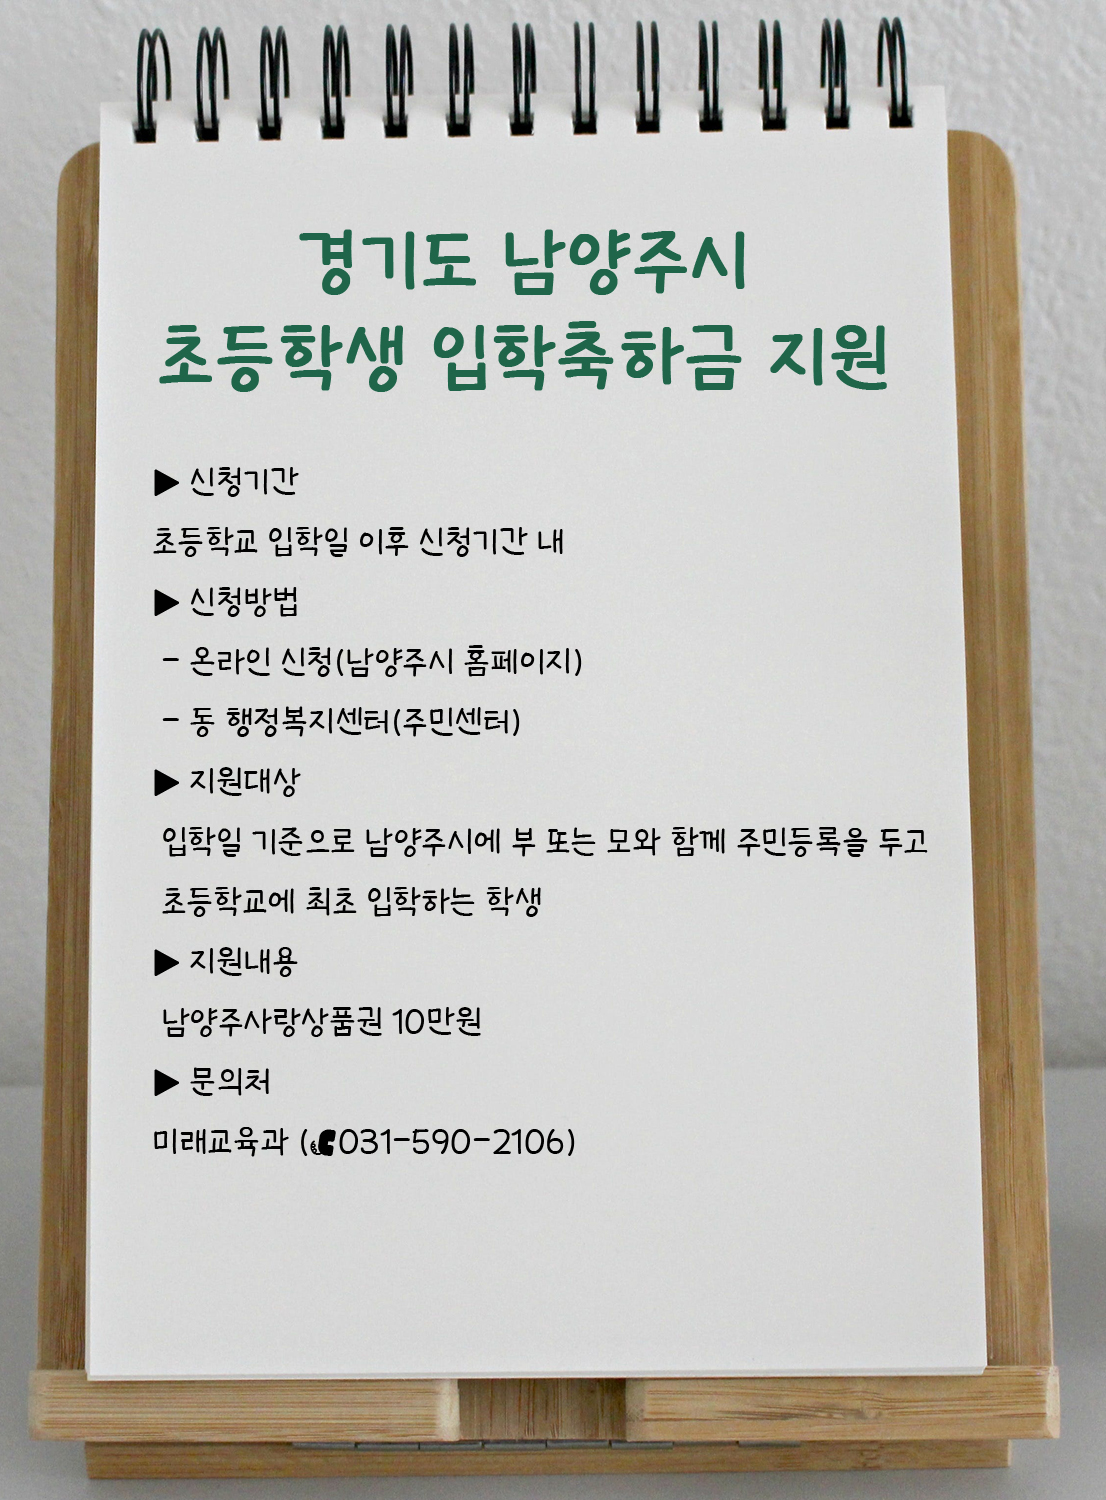 경기도 남양주시
초등학생 입학축하금 지원
▶ 신청기간
초등학교 입학일 이후 신청기간 내
▶ 신청방법
- 온라인 신청(남양주시 홈페이지)
- 동 행정복지센터(주민센터)
▶ 지원대상
입학일 기준으로 남양주시에 부 또는 모와 함께 주민등록을 두고
초등학교에 최초 입학하는 학생
▶ 지원내용
남양주사랑상품권 10만원
▶ 문의처
미래교육과 (☎031-590-2106)